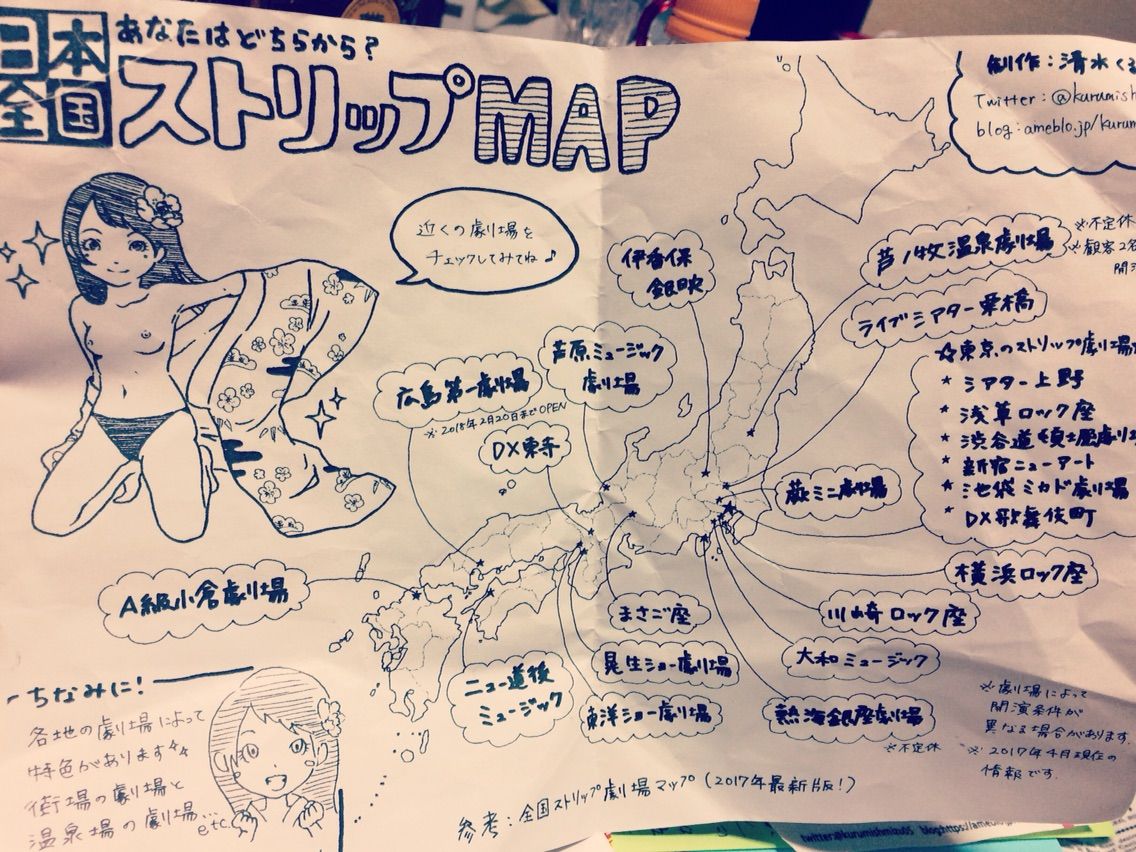 日本
全国
あなたはどちらから?
ストリップMAP
制作:清水く
Twitter:@kurumish
blog:ameblo.jp/kurum
近くの劇場を
チェックしてみてね♪
伊香保
銀映
芦ノ牧温泉劇場
※不定休
※観客2名
開演
ライブシアター栗橋
芦原ミュージック
劇場
広島第一劇場
※2018年2月20日までOPEN
DX東寺
☆東京のストリップ劇場
* シアター上野
* 浅草ロック座
* 渋谷道頓堀劇場
* 新宿ニューアート
* 池袋ミカド劇場
* DX歌舞伎町
蕨ミニ劇場
横浜ロック座
A級小倉劇場
まさご座
川崎ロック座
晃生ショー劇場
大和ミュージック
ニュー道後
ミュージック
東洋ショー劇場
熱海銀座劇場
※不定休
ちなみに!
各地の劇場によって
特色があります
街場の劇場と
温泉場の劇場…
etc
※劇場によって
開演条件が
異なる場合があります.
※2017年4月現在の
情報です.
参考:全国ストリップ劇場マップ(2017年最新版!)